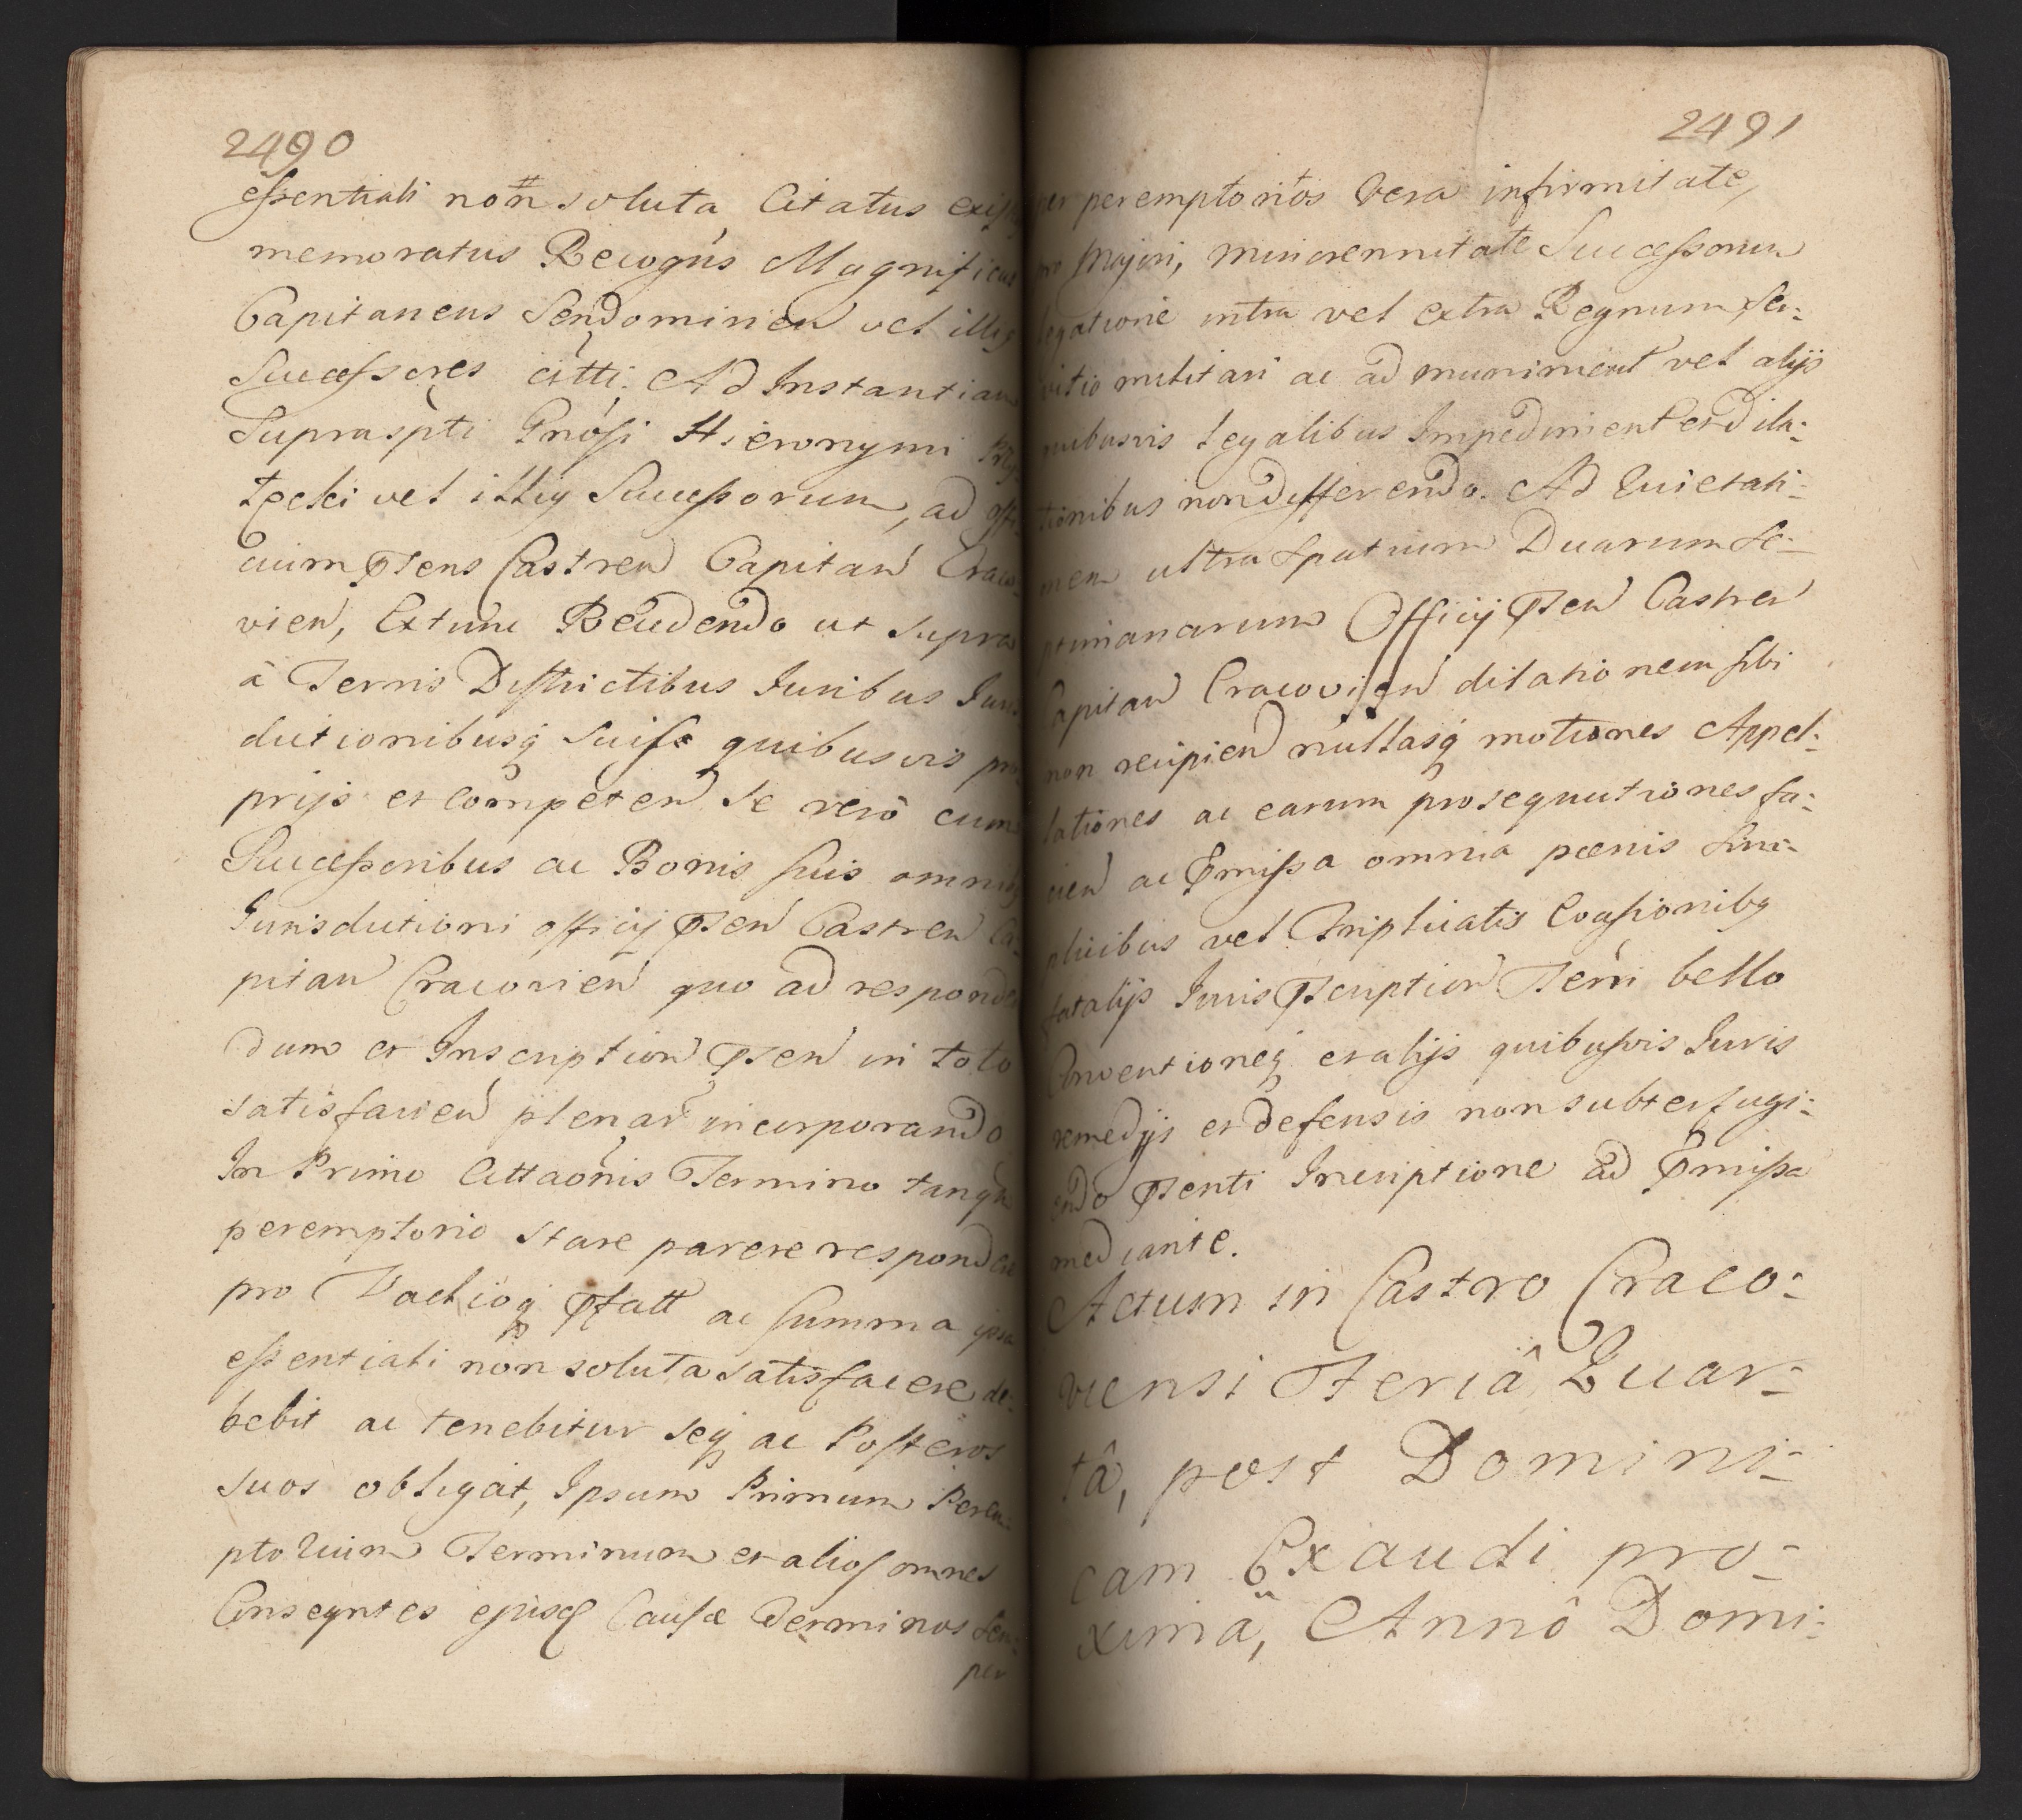 2490
essentiali non soluta Citatus
memoratus Recogñs Magnificus
Capitaneus Sendomirien vel illiq
Successores citti. Ad Instantiam
Suprasþti Gnosi Hieronymi
vel illiq Successorum, ad offi-
cium þsens Castren Capitan Craco-
vien, Extunc Recedendo ut supra
à Terris Districtibus Juribus Juris
dictionibusq suis quibusvis pro
prijs et competen se vero cum
Successoribus ac Bonis suis omnibq
Jurisdictioni officij þsen Castren Ca-
pitan Cracovien quo ad responden
dum et Inscription þsen in toto
satisfacien plenar incorporando
In Primo Cittaonis Termino tanqm
peremptorio stare parere respondere
pro Vadioq þfatt ac summa ipsa
essentiali non soluta satisfacere de-
bebit ac tenebitur seq ac Posteros
suos obligat, Ipsum Primum Perem-
ptorium Terminum et alios omnes
Conseqntes ejusq Causæ Terminos sem-
per
2491
per peremptorios vera infirmitate
pro Majori, minorennitate Successorum
legatione intra vel extra Regnum ser-
vitio militari ac ad muniment vel alijs
quibusvis legalibus Impediment et dila-
tionibus non differendo. Ad Quietati-
onem ultra spatium Duarum Se-
ptimanarum Officij þsen Castren
Capitan Cracovien dilationem sibi
non recipien nullasq motiones Appel-
lationes ac earum prosequutiones fa-
cien ac þmissa omnia pœnis sim-
plicibus vel Triplicatis Evasionibq
fatalijs Juris þscription Terri bello
Conventioneq et alijs quibusvis Juris
remedijs et defensis non subterfugi-
endo þsenti Inscriptione ad þmissa
mediante.
Actum in Castro Craco-
viensi Feriâ Quar-
tâ, post Domini-
cam Exaudi pro-
xima, Annô Domi-